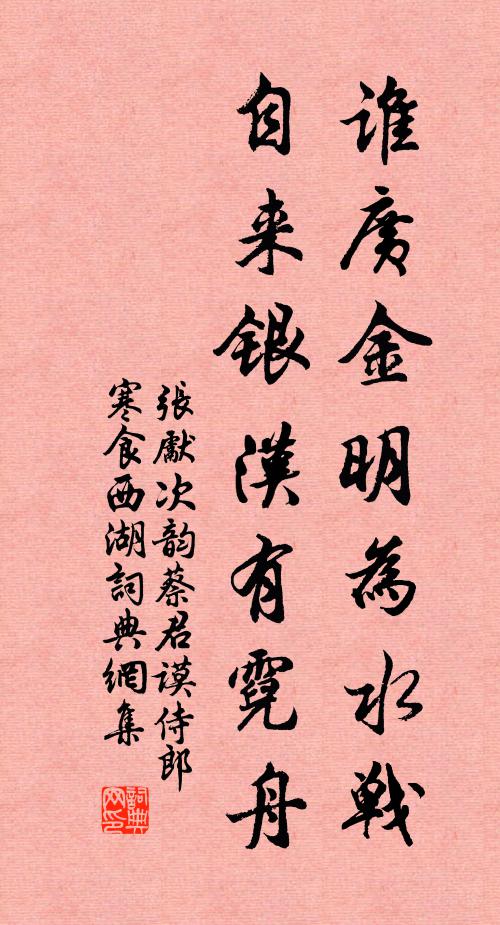 誰廣金明為水戰
自来銀漢有霓舟
張獻次韵蔡君謨侍郎
寒食西湖詞典網集
詞典网印